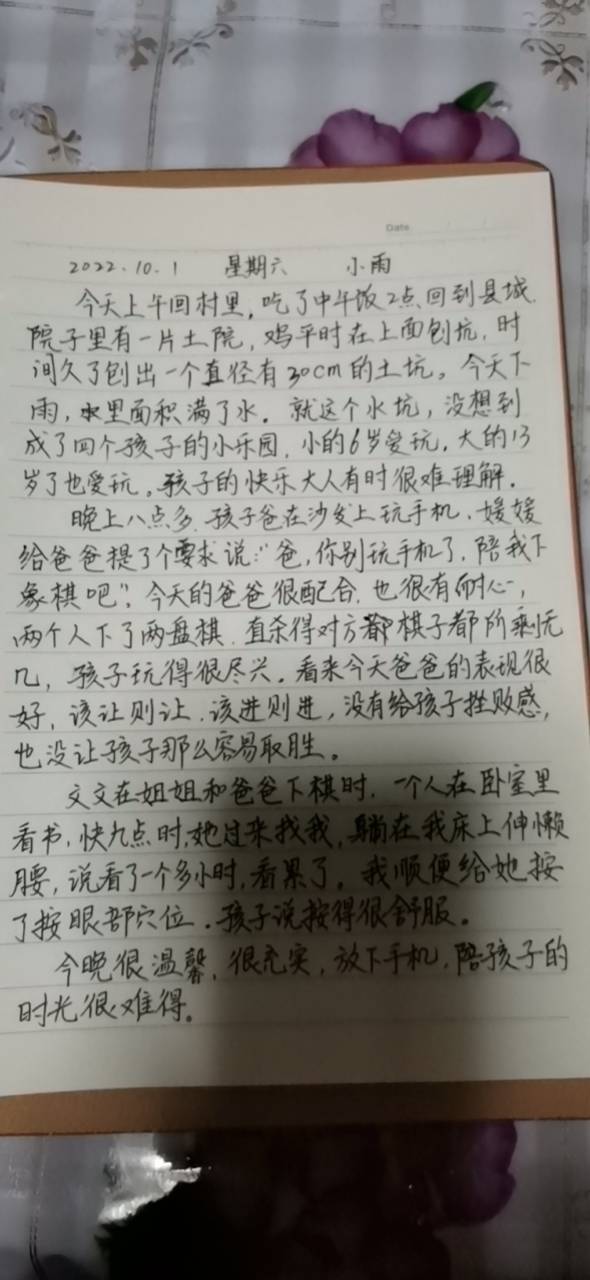 Date
2022.10.1 星期六 小雨
今天上午回村里，吃了中午饭2点回到县城.
院子里有一片土院，鸡平时在上面刨坑，时
间久了刨出一个直径有30cm的土坑。今天下
雨，里面积满了水。就这个水坑，没想到
成了四个孩子的小乐园，小的6岁爱玩，大的13
岁了也爱玩。孩子的快乐大人有时很难理解.
晚上八点多，孩子爸在沙发上玩手机，媛媛
给爸爸提了个要求说：“爸，你别玩手机了，陪我下
象棋吧”，今天的爸爸很配合，也很有耐心，
两个人下了两盘棋，直杀得对方都棋子都所剩无
几，孩子玩得很尽兴。看来今天爸爸的表现很
好，该让则让，该进则进，没有给孩子挫败感，
也没让孩子那么容易取胜。
文文在姐姐和爸爸下棋时，一个人在卧室里
看书，快九点时，她过来找我，躺在我床上伸懒
腰，说看了一个多小时，看累了。我顺便给她按
了按眼部穴位。孩子说按得很舒服。
今晚很温馨，很充实，放下手机，陪孩子的
时光很难得。